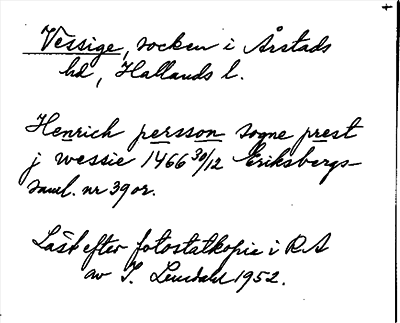 Vessige, socken i Årstads
hd, Hallands l.
Henrich persson sogne prest
j wessie 1466 30/12 Eriksbergs-
saml. nr 39 or.
Läst efter fotostatkopie i RA
av I. 1952.